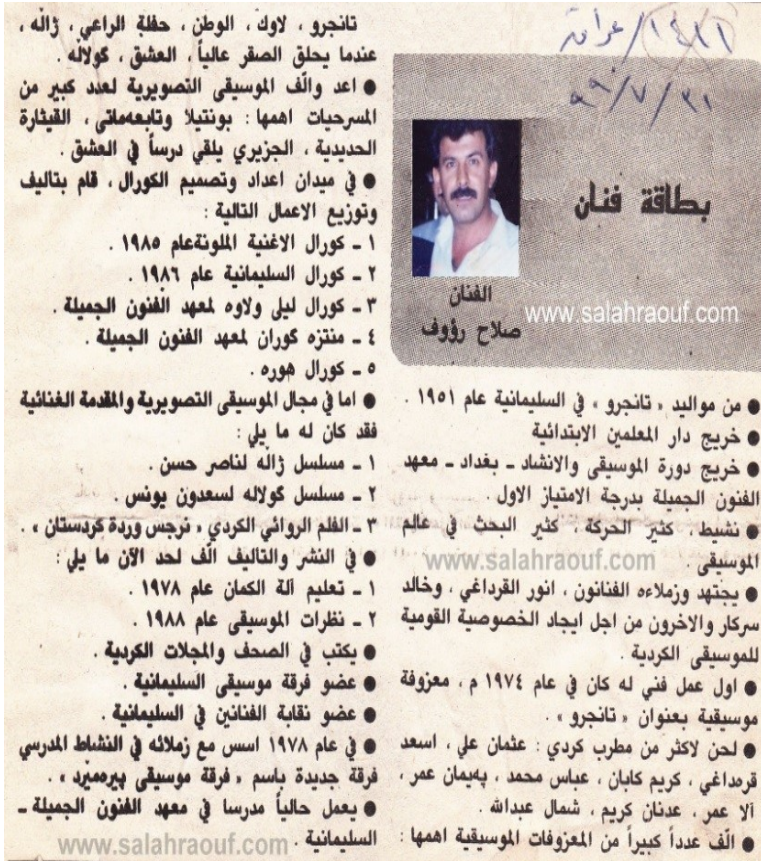 ١٤٢١ / عراق
٣١ / ٧ / ٩٩
بطاقة فنان
الفنان
صلاح رؤوف
www.salahraouf.com
● من مواليد « تانجرو » في السليمانية عام ١٩٥١ .
● خريج دار المعلمين الابتدائية
● خريج دورة الموسيقى والانشاد ـ بغداد ـ معهد
الفنون الجميلة بدرجة الامتياز الاول .
● نشيط ، كثير الحركة ، كثير البحث في عالم
الموسيقى .
www.salahraouf.com
● يجتهد وزملاءه الفنانون ، انور القرداغي ، وخالد
سركار والاخرون من اجل ايجاد الخصوصية القومية
للموسيقى الكردية .
● اول عمل فني له كان في عام ١٩٧٤ م ، معزوفة
موسيقية بعنوان « تانجرو » .
● لحن لاكثر من مطرب كردي : عثمان علي ، اسعد
قرەداغي ، كريم كابان ، عباس محمد ، پەيمان عمر ،
آلا عمر ، عدنان كريم ، شمال عبدالله .
● الّف عدداً كبيراً من المعزوفات الموسيقية اهمها :
تانجرو ، لاوك ، الوطن ، حفلة الراعي ، ژاله ،
عندما يحلق الصقر عالياً ، العشق ، كولاله .
● اعد والّف الموسيقى التصويرية لعدد كبير من
المسرحيات اهمها : بونتيلا وتابعەماتى ، القيثارة
الحديدية ، الجزيري يلقي درساً في العشق .
● في ميدان اعداد وتصميم الكورال ، قام بتاليف
وتوزيع الاعمال التالية :
١ ـ كورال الاغنية الملونةعام ١٩٨٥ .
٢ ـ كورال السليمانية عام ١٩٨٦ .
٣ ـ كورال ليلى ولاوه لمعهد الفنون الجميلة .
٤ ـ منتزه كوران لمعهد الفنون الجميلة .
٥ ـ كورال هوره .
● اما في مجال الموسيقى التصويرية والمقدمة الغنائية
فقد كان له ما يلي :
١ ـ مسلسل ژاله لناصر حسن .
٢ ـ مسلسل كولاله لسعدون يونس .
٣ ـ الفلم الروائي الكردي « نرجس وردة كردستان » .
● في النشر والتاليف الّف لحد الآن ما يلي :
١ ـ تعليم آلة الكمان عام ١٩٧٨ .
٢ ـ نظرات الموسيقى عام ١٩٨٨ .
● يكتب في الصحف والمجلات الكردية .
● عضو فرقة موسيقى السليمانية .
● عضو نقابة الفنانين في السليمانية .
● في عام ١٩٧٨ اسس مع زملائه في النشاط المدرسي
فرقة جديدة باسم « فرقة موسيقى پيرەميرد » .
● يعمل حالياً مدرسا في معهد الفنون الجميلة ـ
السليمانية .
www.salahraouf.com